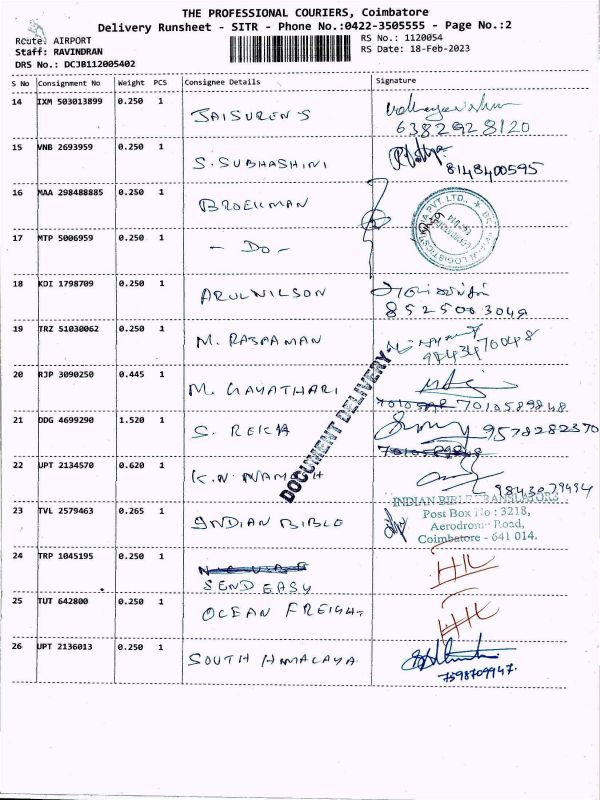 THE PROFESSIONAL COURIERS, Coimbatore
Delivery Runsheet - SITR - Phone No.:0422-3505555 - Page No.:2
Route: AIRPORT
Staff: RAVINDRAN
DRS No.: DCJB112005402
RS No.: 1120054
RS Date: 18-Feb-2023
S No Consignment No Weight PCS Consignee Details Signature
14 IXM 503013899 0.250 1 JAISUREN S
6382928120
15 VNB 2693959 0.250 1 S. SUBHASHINI
8148400595
16 MAA 298488885 0.250 1 BROEKMAN
17 MTP 5006959 0.250 1 - DO -
18 KDI 1798709 0.250 1 ARULWILSON
8525003049
19 TRZ 51030062 0.250 1
20 RJP 3090250 0.445 1 M. GAYATHARI
7010589848
21 DDG 4699290 1.520 1 S. REKHA 9578282370
22 UPT 2134570 0.620 1 K.N.
9843079494
DOCUMENT DELIVERY
23 TVL 2579463 0.265 1 INDIAN BIBLE
INDIAN BIBLE TRANSLATORS
Post Box No : 3218,
Aerodrome Road,
Coimbatore - 641 014.
24 TRP 1045195 0.250 1
SEND EASY
25 TUT 642800 0.250 1 OCEAN FREIGHT
26 UPT 2136013 0.250 1 SOUTH HIMALAYA
7598709947.